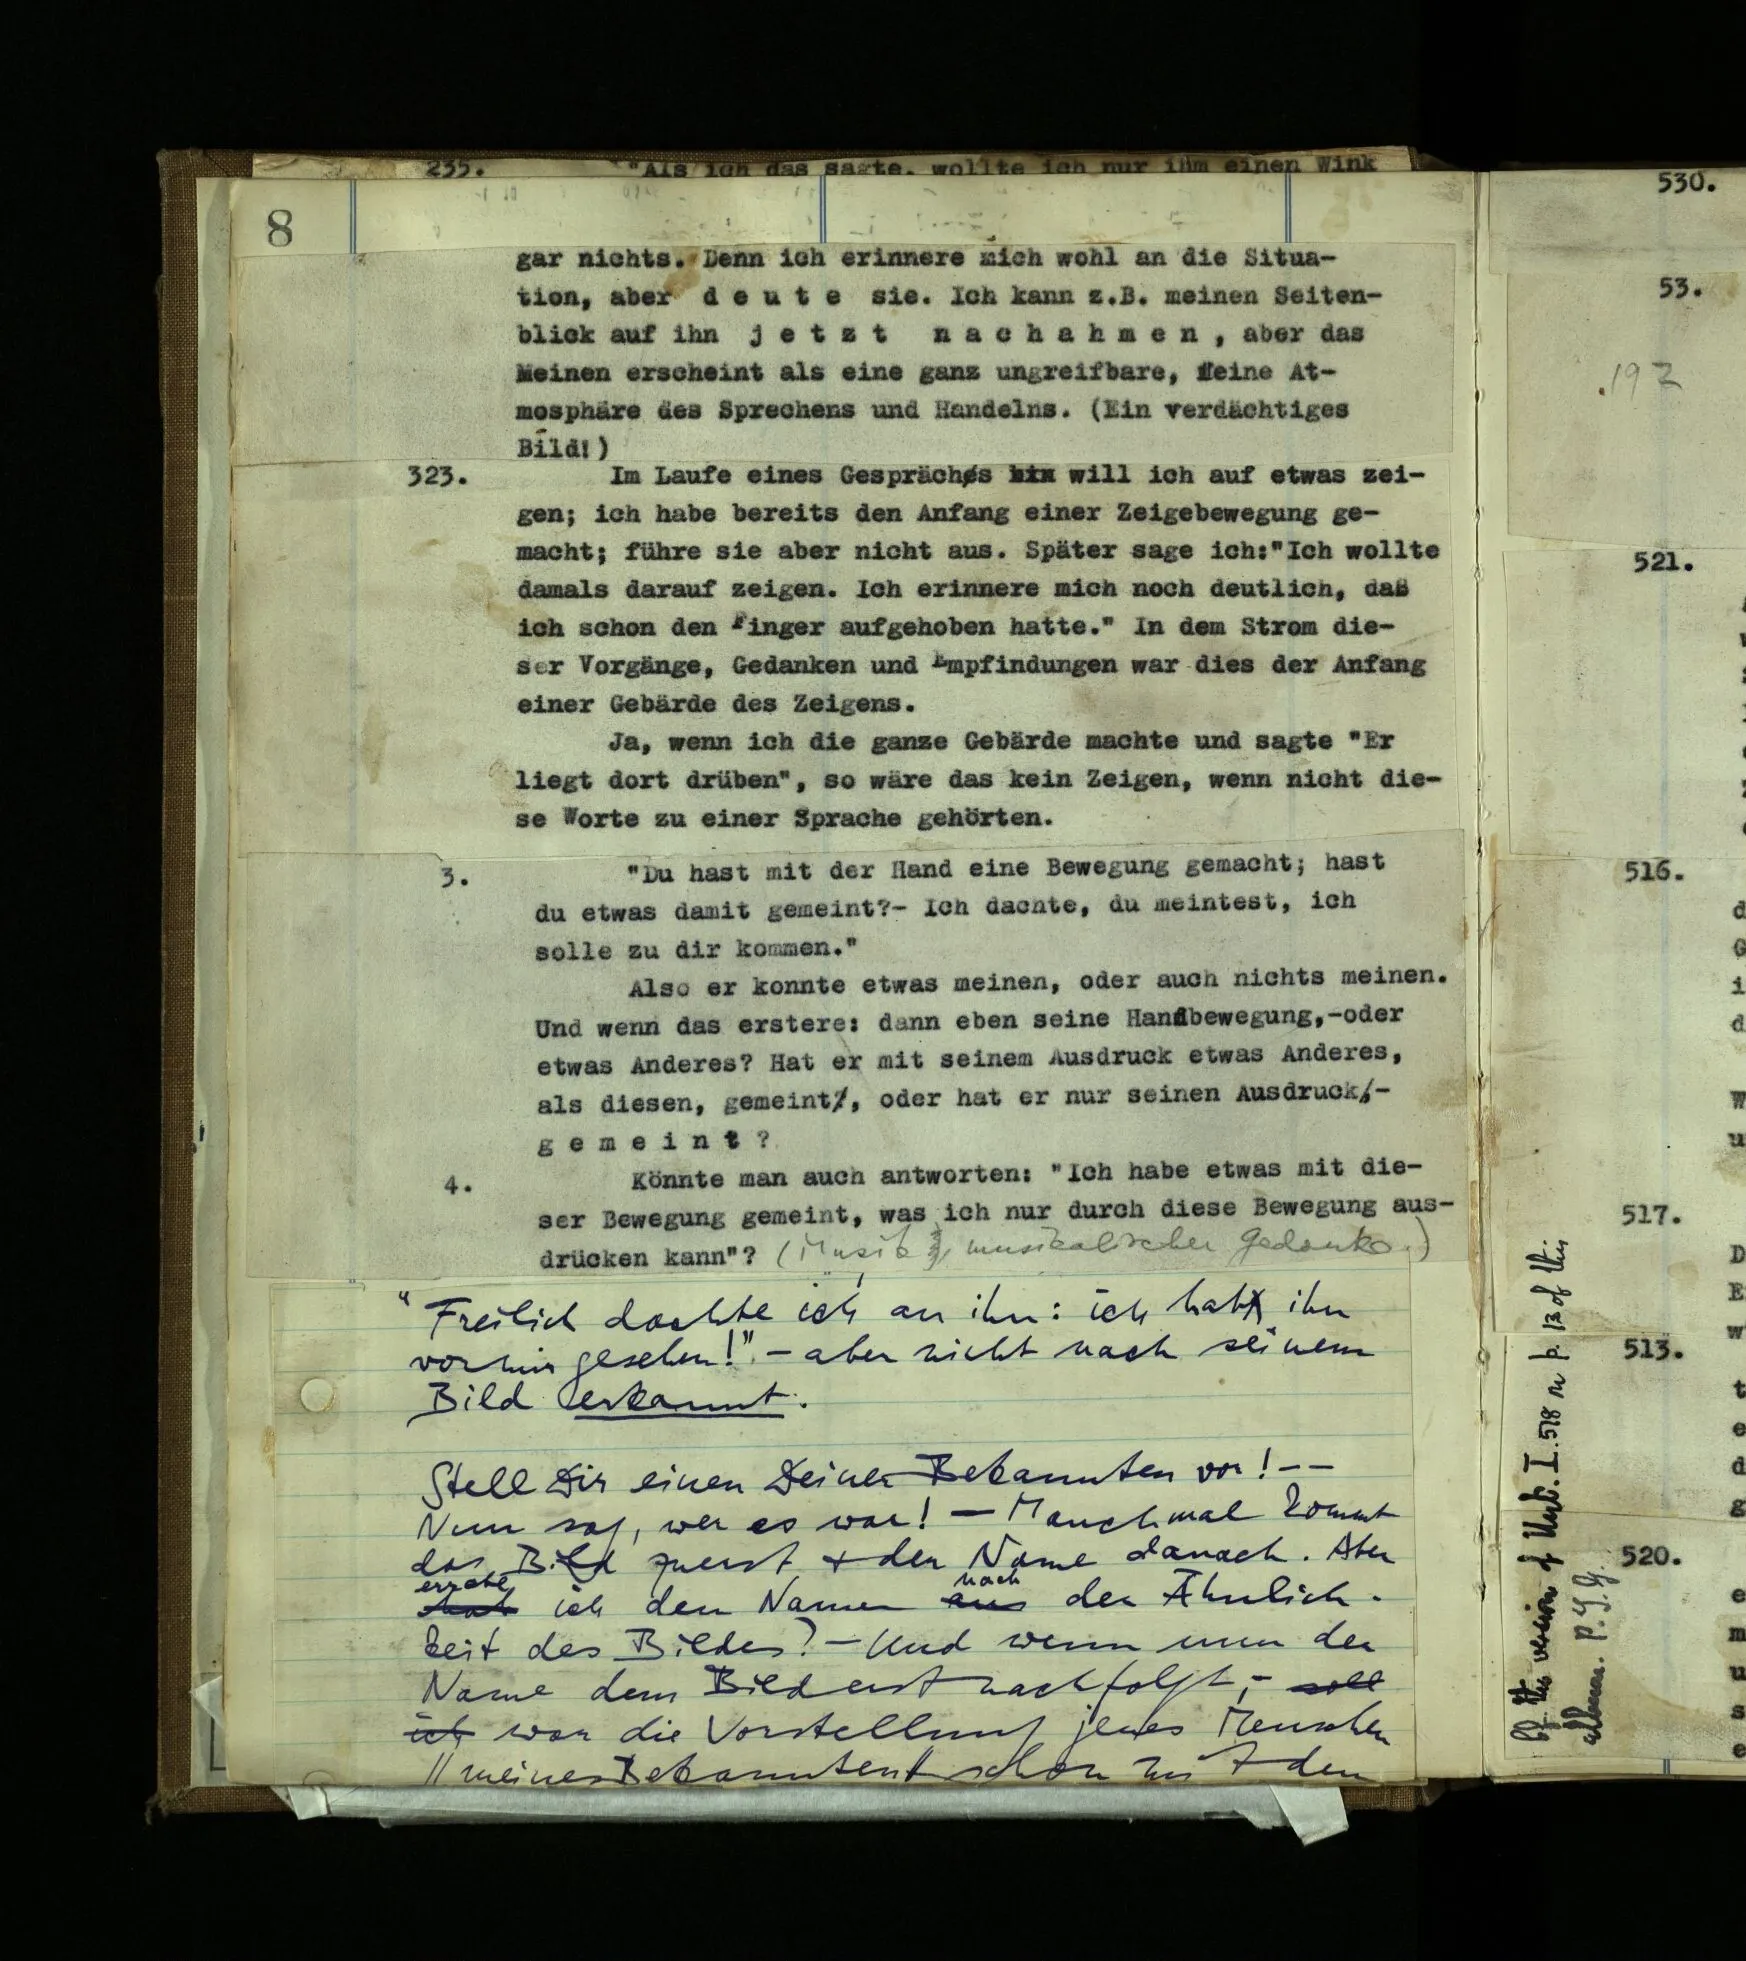 235. "Als ich das sagte, wollte ich nur ihm einen Wink
8
gar nichts. Denn ich erinnere mich wohl an die Situa-
tion, aber d e u t e sie. Ich kann z.B. meinen Seiten-
blick auf ihn j e t z t n a c h a h m e n , aber das
Meinen erscheint als eine ganz ungreifbare, feine At-
mosphäre des Sprechens und Handelns. (Ein verdächtiges
Bild!)
323. Im Laufe eines Gesprächs will ich auf etwas zei-
gen; ich habe bereits den Anfang einer Zeigebewegung ge-
macht; führe sie aber nicht aus. Später sage ich:"Ich wollte
damals darauf zeigen. Ich erinnere mich noch deutlich, daß
ich schon den Finger aufgehoben hatte." In dem Strom die-
ser Vorgänge, Gedanken und Empfindungen war dies der Anfang
einer Gebärde des Zeigens.
Ja, wenn ich die ganze Gebärde machte und sagte "Er
liegt dort drüben", so wäre das kein Zeigen, wenn nicht die-
se Worte zu einer Sprache gehörten.
3. "Du hast mit der Hand eine Bewegung gemacht; hast
du etwas damit gemeint?- Ich dachte, du meintest, ich
solle zu dir kommen."
Also er konnte etwas meinen, oder auch nichts meinen.
Und wenn das erstere: dann eben seine Handbewegung,-oder
etwas Anderes? Hat er mit seinem Ausdruck etwas Anderes,
als diesen, gemeint, oder hat er nur seinen Ausdruck-
g e m e i n t ?
4. Könnte man auch antworten: "Ich habe etwas mit die-
ser Bewegung gemeint, was ich nur durch diese Bewegung aus-
drücken kann"? (Musik, musikalischer Gedanke.)
"Freilich dachte ich an ihn: ich hab ihn
vorhin gesehen!" – aber nicht nach seinem
Bild erkannt.
Stell Dir einen Deiner Bekannten vor! – –
Nun sag, wer es war! – Manchmal kommt
das Bild zuerst + der Name danach. Aber
errate
nach
hat ich den Namen aus der Ähnlich-
keit des Bildes? – Und wenn nun der
Name dem Bild erst nachfolgt, – soll
ich war die Vorstellung jenes Menschen
// meines Bekannten // schon mit dem
530.
53.
192
521.
516.
d
G
i
d
W
u
517.
D
E
w
513.
t
e
d
g
520.
e
m
u
s
e
Cf. this version of Unt. I. 518 on p. 13 of this
album. P.G.G.